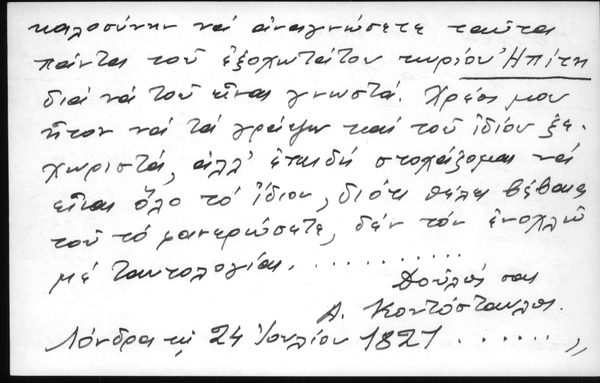 καλοσύνην νά ἀναγνώσετε ταῦτα
πάντα τοῦ ἐξοχωτάτου κυρίου Ἠπίτη
διά νά τοῦ εἶναι γνωστά. Χρέος μου
ἦτον νά τά γράψω καί τοῦ ἰδίου ξε-
χωριστά, ἀλλ' ἐπειδή στοχάζομαι νά
εἶναι ὅλο τό ἴδιον, διότι θέλει βέβαια
τοῦ τό φανερώσετε, δέν τόν ἐνοχλῶ
μέ ταυτολογίας. . . . . . . . . . .
Δοῦλός σας
Α. Κοντόσταυλος.
Λόνδρα τῇ 24 Ἰουλίου 1821 . . . . . . "